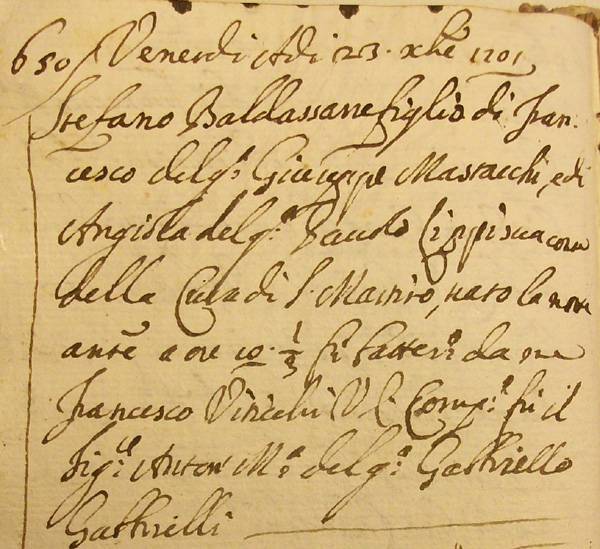 650 Venerdi Adi 23. xbre 1701
Stefano Baldassarre figlio di Fran-
cesco del q.m Giuseppe Mastacchi, e di
Angiola del q.m Paulo sua
della Cura di S. Martino, nato la notte
ante a ore 10. 1/3 fu batte.o da me
Francesco V. C. Comp.e fu il
Sig.re Anton M.a del q.m Gabbriello
Gabbrielli